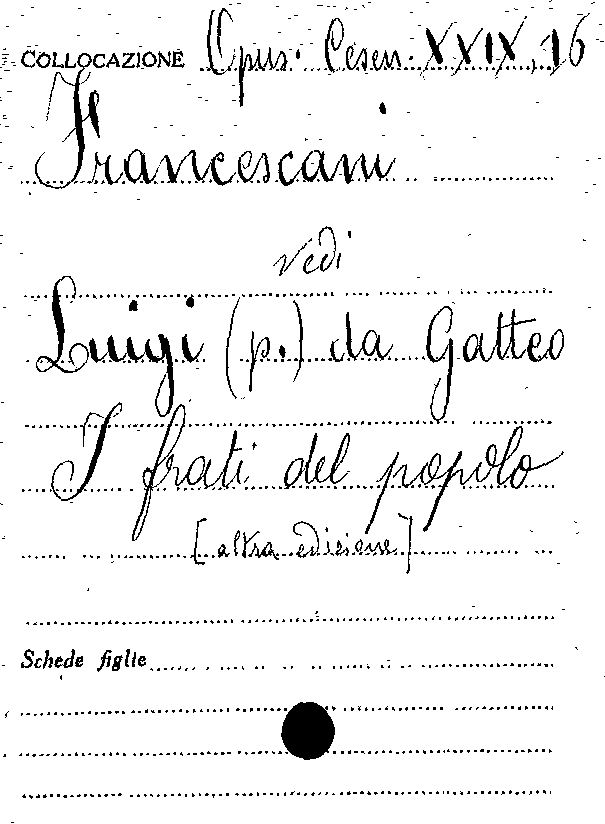 COLLOCAZIONE Opus. Cesen. XXIX, 16
Francescani
vedi
Luigi (p.) da Gatteo
I frati del popolo
[altra edizione]
Schede figlie